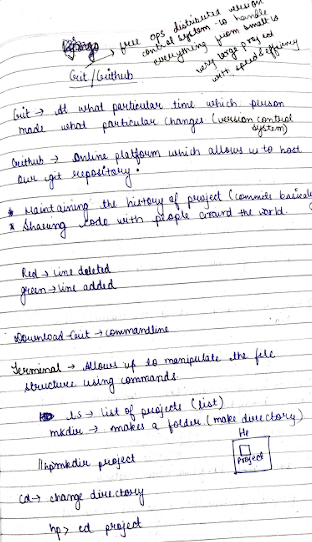 free ops distributed version
control system to handle
everything from small to
very large project
with speed efficiency
Git/Github
Git → At what particular time which person
made what particular changes (version control
system)
Github → Online platform which allows us to host
our git repository.
* Maintaining the history of project (commits basically
* Sharing code with people around the world.
Red → line deleted
green → line added
Download Git → commandline
Terminal → Allows up to manipulate the file
structure using commands.
ls → list of projects (list)
mkdir → makes a folder (make directory)
mkdir project
Project
cd → change directory
hp> cd project